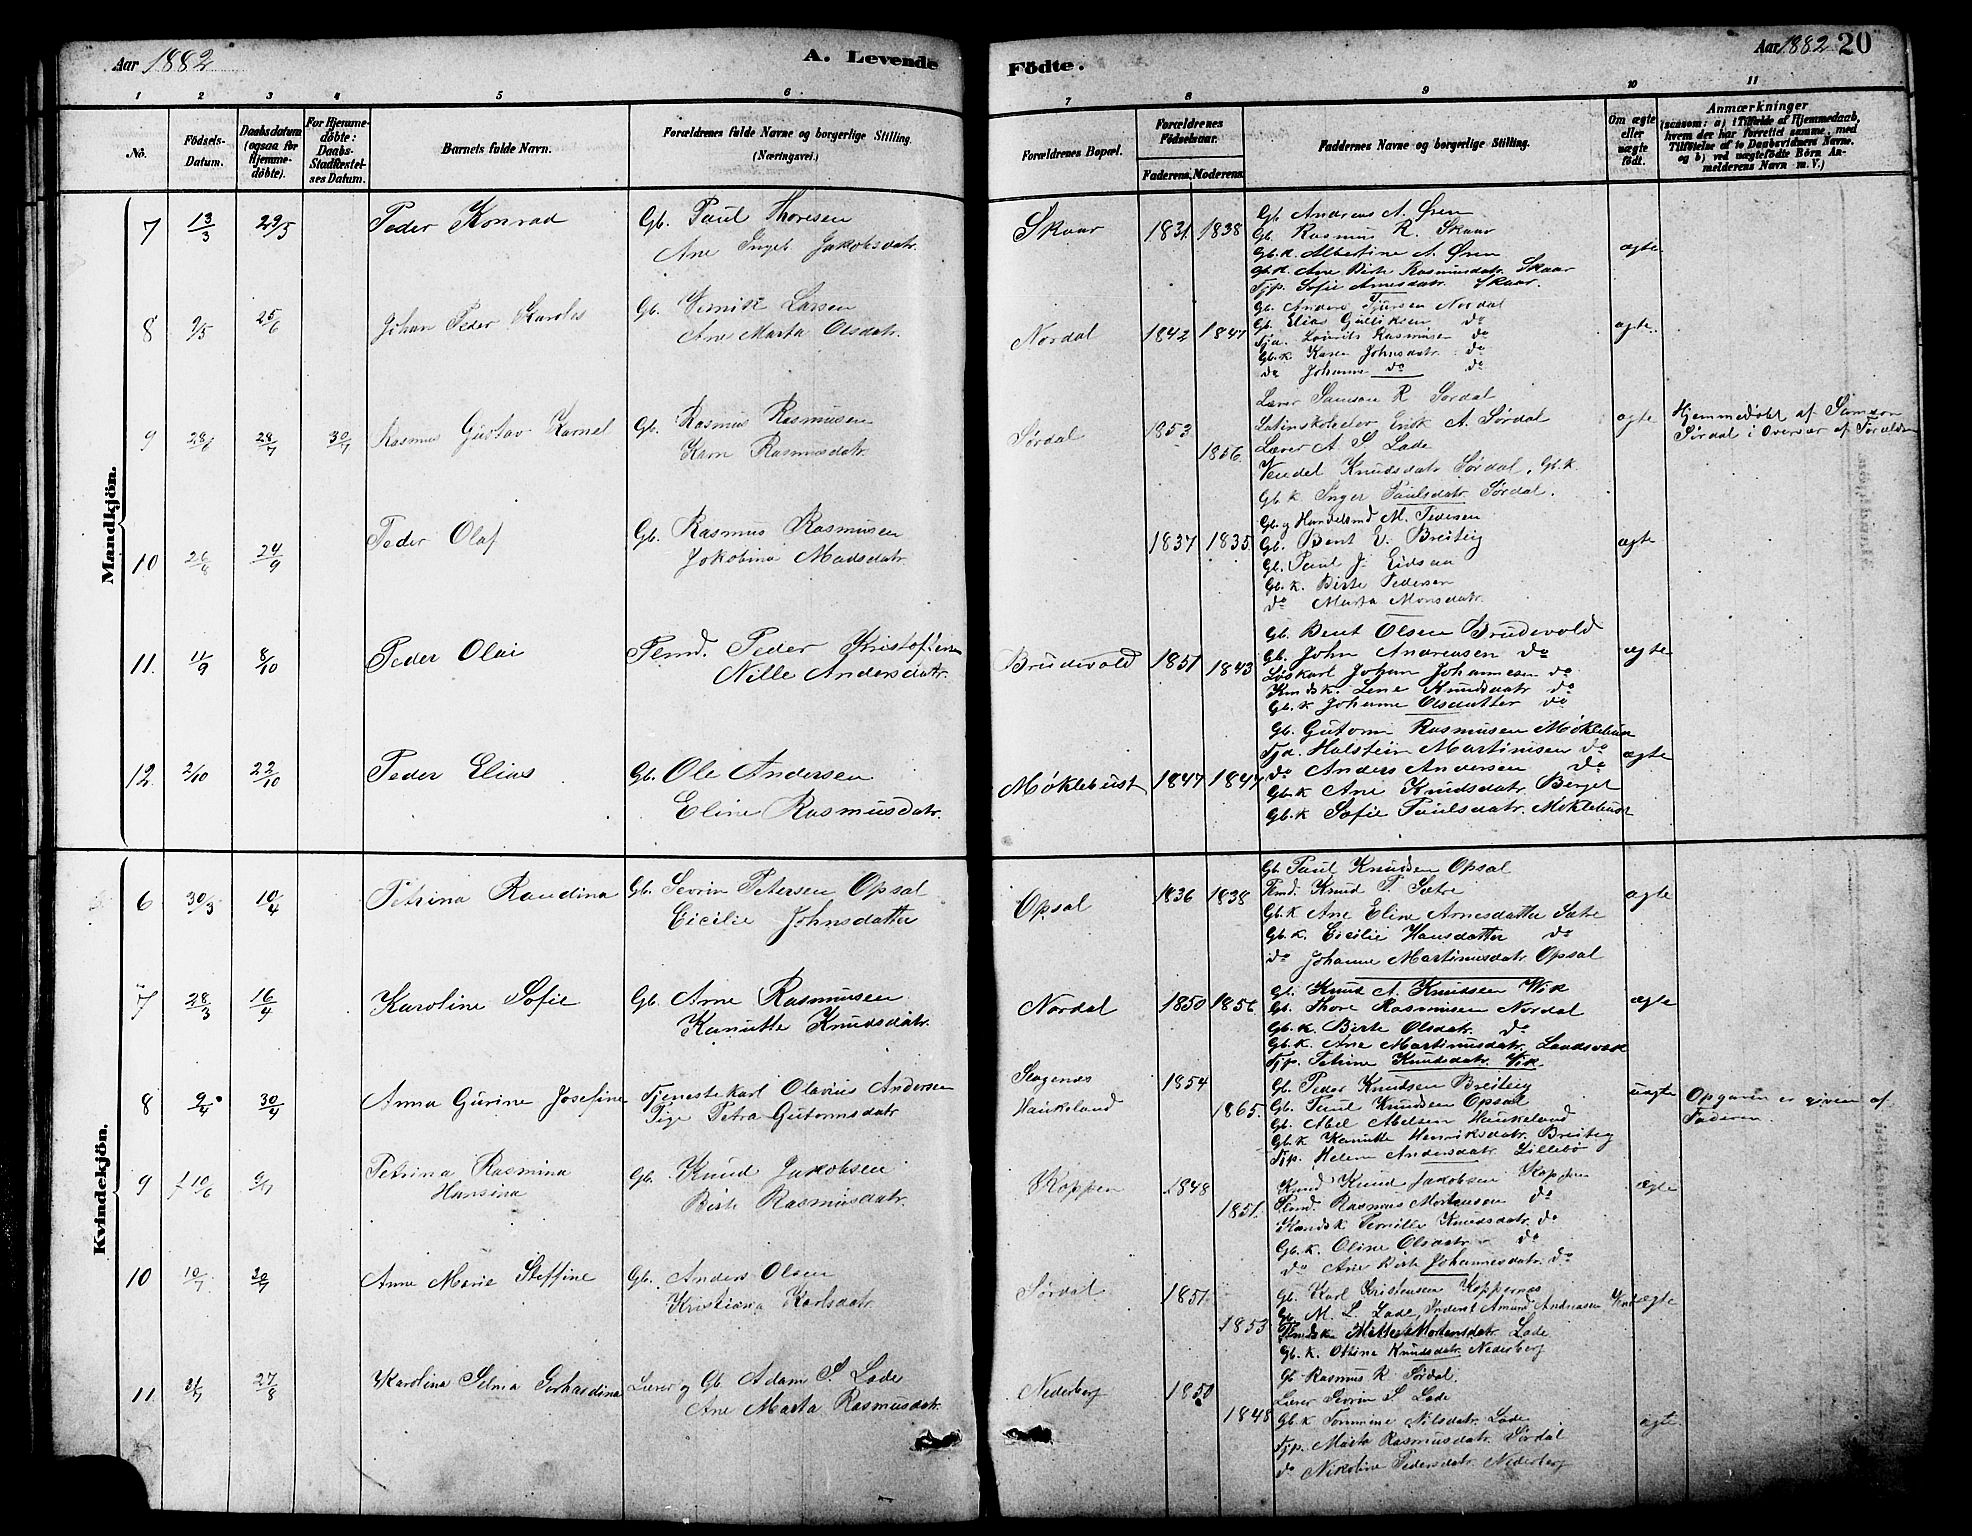 Aar 1882
A. Levende
Födte.
Aar 1882 20
1 2 3 4 5 6 7 8 9 10 11
No.
Födsels-Datum.
Daabsdatum (ogsaa for Hjemme-döbte).
For Hjemme-döbte: Daabs-Stadfæstel-ses Datum.
Barnets fulde Navn.
Forældrenes fulde Navne og borgerlige Stilling. (Næringsvei.)
Forældrenes Bopæl.
Forældrenes Födselsaar.
Faderens. Moderens.
Faddernes Navne og borgerlige Stilling.
Om ægte eller uægte födt.
Anmærkninger
(saasom: a) i Tilfælde af Hjemmedaab, hvem der har forrettet samme, med Tilföielse af to Daabsvidners Navne. og b) ved uægtefödte Börn An-melderens Navn m. V.)
Mandkjön.
7 13/3 29/5 Peder Konrad
Gb. Paul Thoresen
Ane Ingeb. Jakobsdatr.
Skaar 1831 1838
Gb. Andreas A. Øren
Gb. Rasmus R. Skaar
Gb.k. Albertine A. Øren
Gb.k. Ane Birte Rasmusdatr. Skaar
Tjp. Sofie Arnesdatr. Skaar.
ægte
8 9/5 25/6 Johan Peder Karolus
Gb. Larsen
Ane Marta Olsdatr.
Nordal 1842 1847
Gb. Anders Nordal
Gb. Elias Gulliksen do
Tjd. Lourits Rasmusen do
Gb.k Karen Johnsdatr. do
do Johanne do do
ægte
9 28/6 28/7 30/7 Rasmus Gustav Kornel
Gb. Rasmus Rasmusen
Karn Rasmusdatr.
Sørdal 1853 1856
Lærer Samson R Sørdal
A. Sørdal
Lærer A S Lade
Vendel Knudsdatr. Sørdal, Gb.k
Gb.k Inger Paulsdatr. Sørdal.
ægte
Hjemmedøbt af Samson Sørdal i Overvær af
10 26/8 24/9 Peder Olaf
Gb. Rasmus Rasmusen
Jakobina Madsdatr.
1837 1835
Gb. og M. Pedersen
Gb. Bent E. Breiteig
Gb. Paul J. Eidsaa
Gb.k. Birte Pedersen
do Marta Monsdatr.
ægte
11. 11/9 8/10 Peder Olai
Femd. Peder Kristofersen
Nille Andersdatr.
Brudevold 1851 1843
Gb. Bent Olsen Brudevold
Gb. John Andreasen do
Løskarl Johan Johannesen do
Kmdsk. Lene Knudsdatr do
Gb.k Johanne Olsdatter do
ægte
12. 2/10 22/10 Peder Elias
Gb. Ole Andersen
Eline Rasmusdatr.
Møklebust 1847 1847
Gb. Gutorm Rasmusen Møklebust
Tjd. Halstein Martinusen do
do Anders Andersen do
Gb.k Ane Knudsdatr. Berget
Gb.k Sofie Paulsdatr. Møklebust
ægte
Kvindekjön.
6 30/3 10/4 Petrina Raudina
Gb. Sevrin Petersen Opsal
Cicilie Johnsdatter
Opsal 1836 1838
Gb. Paul Knudsen Opsal
Femd. Knud P. Sætre
Gb.k Ane Eline Arnesdatter Sætre
Gb.k. Cicilie Hansdatter do
do Johanne Martinusdatr. Opsal
ægte
7 28/3 16/4 Karoline Sofie
Gb. Arne Rasmusen
Kanutte Knudsdatr.
Nordal 1850 1856
Gb. Knud A. Knudsen Vik
Gb. Thore Rasmusen Nordal
Gb.k. Birte Olsdatr. do
Gb.k. Ane Martinusdatr. Landsvik
Tjp. Petrine Knudsdatr. Vik
ægte
8 9/4 30/4 Anna Gurine Josefine
Tjenestekarl Olavius Andersen
Pige Petra Gutormsdatr
Slagenæs
Haukeland
1854 1865
Gb. Peder Knudsen Breiteig
Gb. Paul Knudsen Opsal
Gb. Abel Abelsen Haukeland
Gb.k Kanutte Henriksdatr. Breiteig
Tjp. Helene Andersdatr. Lillebø
uægte
Opgaven er given af Faderen.
9 10/6 9/7 Petrina Rasmina Hansina
Gb. Knud Jakobsen
Birte Rasmusdatr.
Koppen 1848 1851
Knud Jakobsen Koppen
Femd. Rasmus Mortensen do
Pernille Knudsdatr. do
Gb.k. Oline Olsdatr. do
do Ane Birte Johannesdatr. do
ægte
10 10/7 30/7 Anne Marie Steffine
Gb. Anders Olsen
Kristiana Karlsdatr.
Sørdal 1851 1853
Gb. Karl Kristensen Koppernæs
Gb. M. L. Lade, Amund Andreasen
Mette Mortensdatr. Lade
Gb.k. Othina Knudsdatr. Nederberg
ægte
11 27/8 Karolina Selma Gerhardina
Lærer og Gb. Adam S. Lade
Ane Marta Rasmusdatr.
Nederberg 1850 1848
Gb. Rasmus R Sørdal.
Lærer Sevrin S. Lade
Gb.k Tommine Nilsdatr. Lade
Tjp. Marta Rasmusdatr. Sørdal
do Nikoline Pedersdatr. Nederberg
ægte